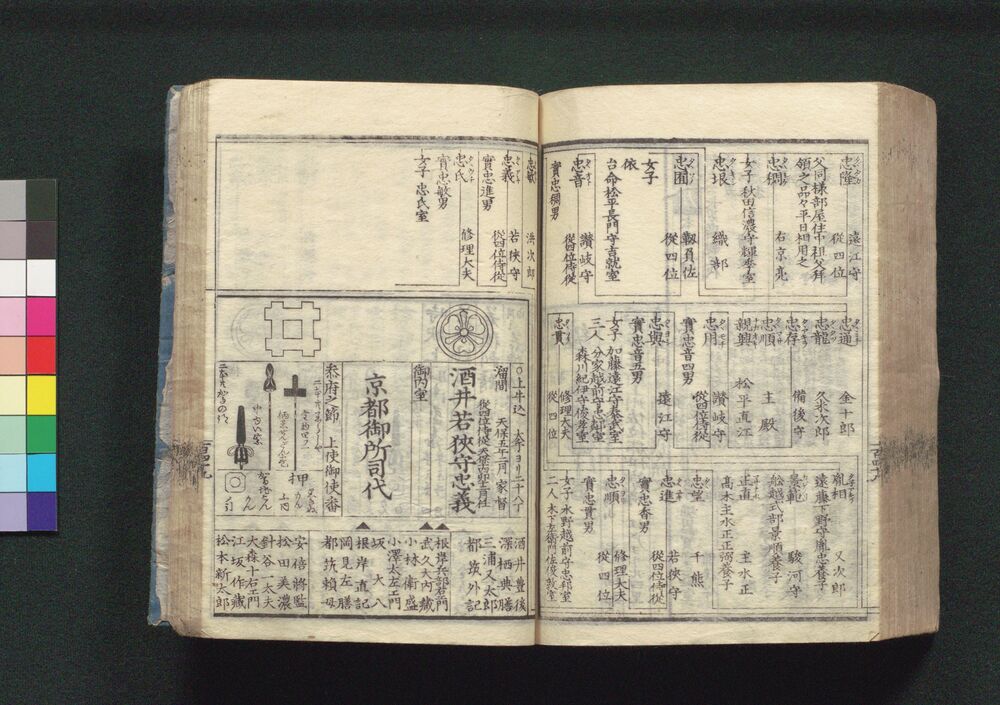 忠隆 遠江守 從四位
父同様部屋住中祖父拜
領之品々平日相用之
忠稠 右京亮
女子 秋田信濃守輝季室
忠垠 織部
忠囿 靱負佐 從四位
女子
依
台命松平長門守吉就室
忠音 讃岐守 從四位侍從
實忠稠男
忠通 金十郎
忠龍 久米次郎
忠存 備後守
忠順 主殿
親興 松平直江
忠用 讃岐守 從四位侍從
實忠音四男
忠與 遠江守
實忠音五男
女子 加藤遠江守泰武室
三人 分家越前守忠郷室
森川紀伊守俊孝室
忠貫 修理大夫 從四位
胤相 又次郎
遠藤下野守胤忠養子
景範 駿河守
船越式部景順養子
正直 主水正
高木主水正正弼養子
忠望 千熊
忠進 若狹守 從四位侍從
實忠香男
忠順 修理大夫 從四位
實忠貫男
女子 水野越前守忠邦室
二人 木下左衛門佐俊敦室
忠敏 浜次郎
忠義 若狹守 從四位侍從
實忠進男
忠氏 修理大夫
實忠敏男
女子 忠氏室
○上牛込 大手ヨリ二十八丁
溜間 天保五年二月家督
從四位侍從
酒井若狹守忠義
御内室
京都御所司代
参府之節 上使御使番
押
酒井豊後
深栖典膳
三浦又太郎
都筑外記
根岸兵部右門
武久大内藏
小林衛盛
小澤太左エ門
坂大八
根岸直記
岡見左膳
都筑頼母
安倍將監
松田美濃
針谷一太夫
大森十右エ門
江坂作藏
松本新太郎